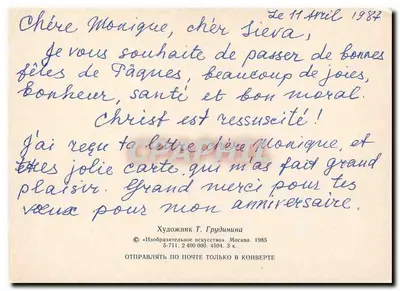 Le 11 Avril 1987
Chère Monique, chèr Sieva,
Je vous souhaite de passer de bonnes
fêtes de Pâques, beaucoup de joies,
bonheur, santé et bon moral.
Christ est ressuscité !
J'ai reçu ta lettre chère Monique, et
très jolie carte, qui m'as fait grand
plaisir. Grand merci pour tes
vœux pour mon anniversaire.
Художник Т. Грудинина
© «Изобразительное искусство». Москва. 1985
5-711. 2 400 000. 4504. 3 к.
ОТПРАВЛЯТЬ ПО ПОЧТЕ ТОЛЬКО В КОНВЕРТЕ